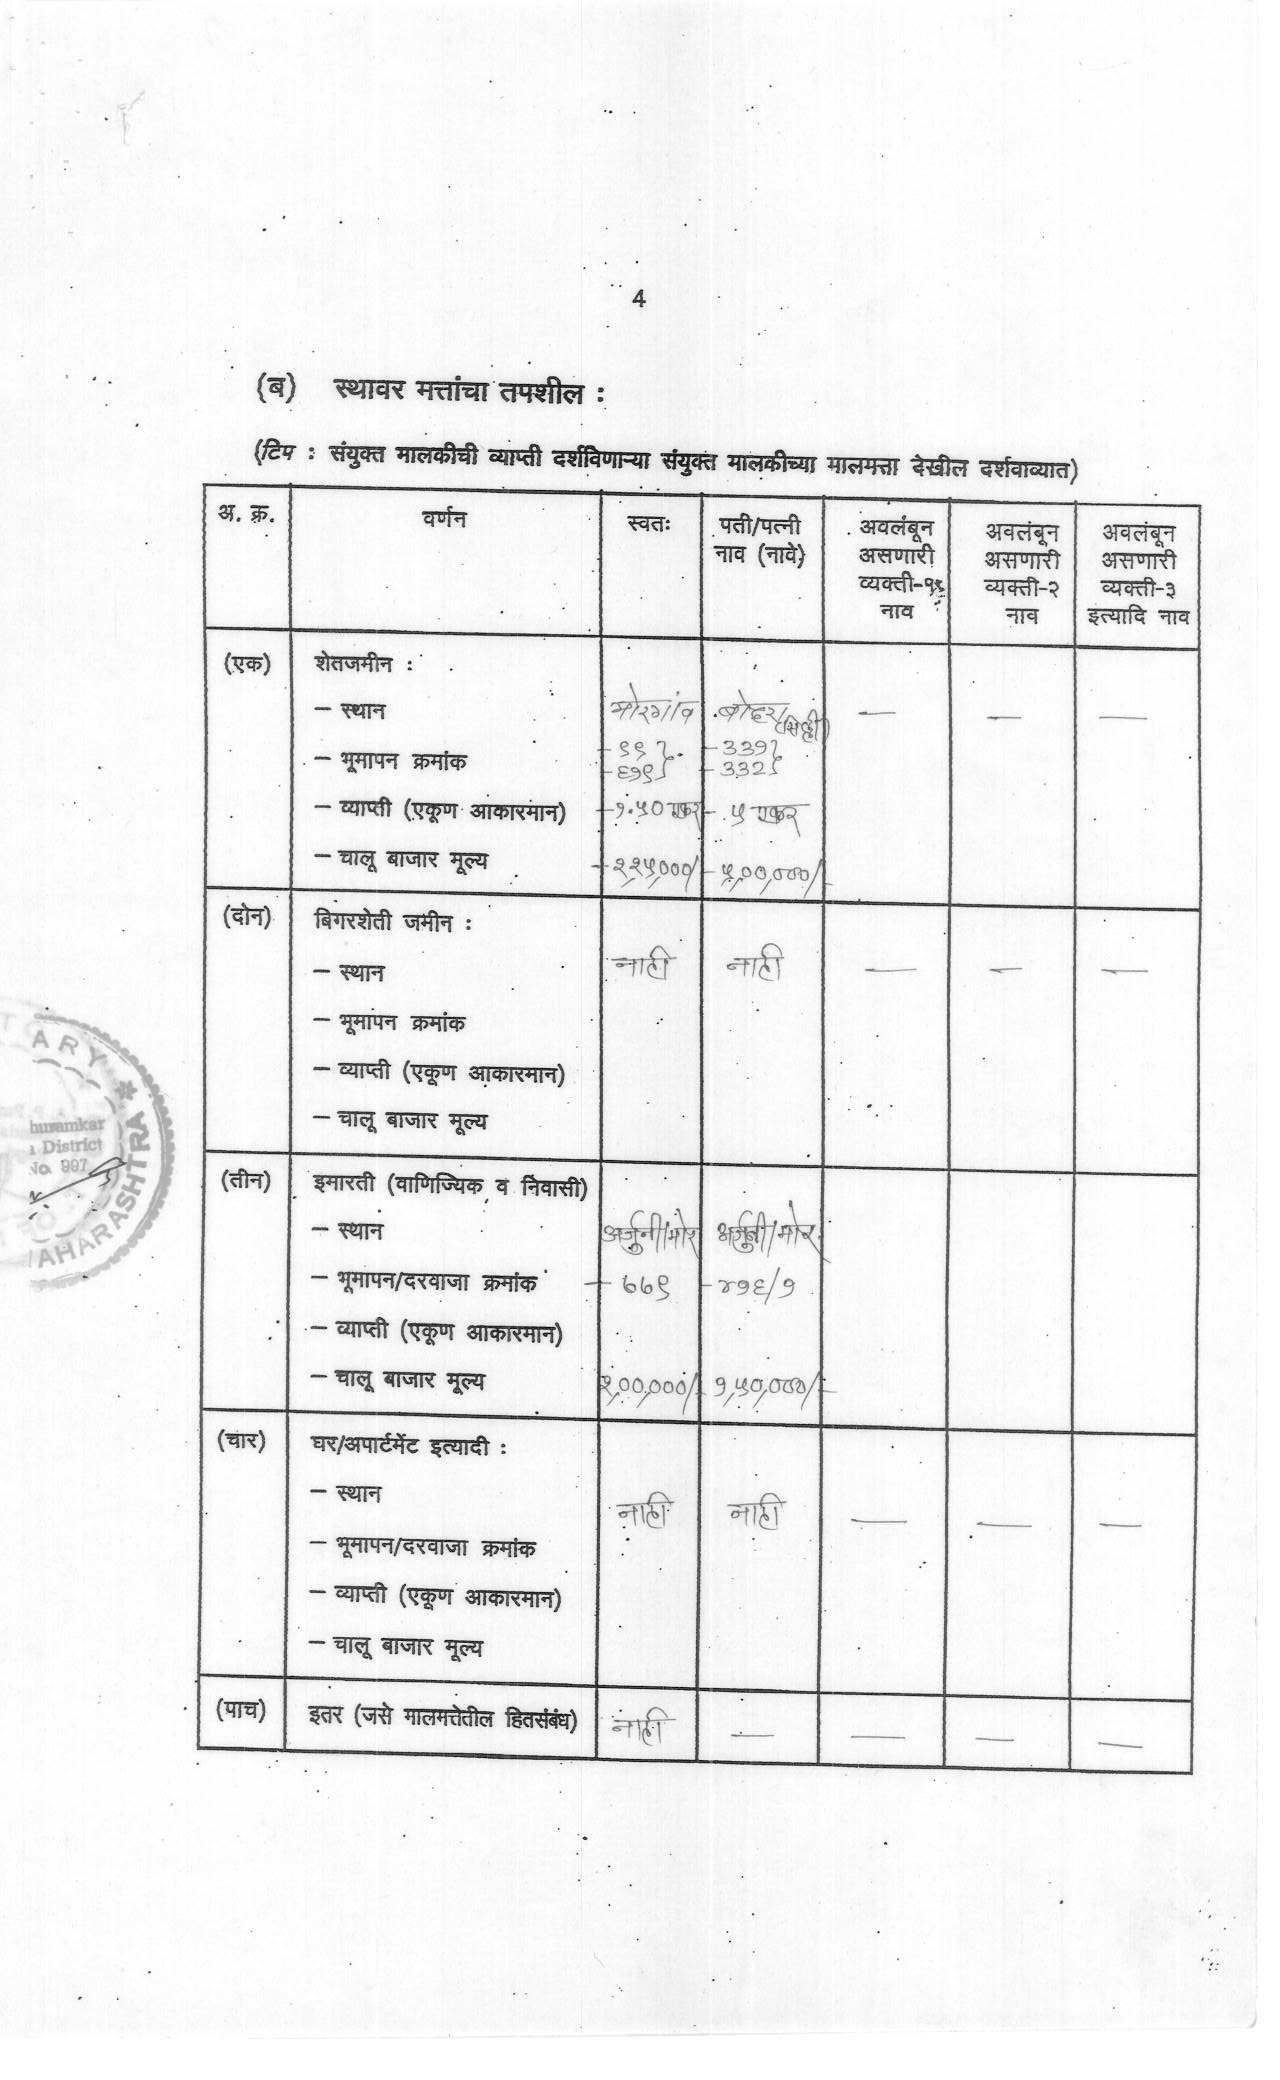 4
(ब) स्थावर मत्तांचा तपशील :
(टिप : संयुक्त मालकीची व्याप्ती दर्शविणाऱ्या संयुक्त मालकीच्या मालमत्ता देखील दर्शवाव्यात)
अ. क्र. वर्णन स्वतः पती/पत्नी नाव (नावे) अवलंबून असणारी व्यक्ती-१ नाव अवलंबून असणारी व्यक्ती-२ नाव अवलंबून असणारी व्यक्ती-३ इत्यादि नाव
(एक) शेतजमीन :
– स्थान मोरगांव — — —
– भूमापन क्रमांक 339 332
– व्याप्ती (एकूण आकारमान) १.५० एकर ५ एकर
– चालू बाजार मूल्य ५,००,०००/-
(दोन) बिगरशेती जमीन :
– स्थान नाही नाही — — —
– भूमापन क्रमांक
– व्याप्ती (एकूण आकारमान)
– चालू बाजार मूल्य
(तीन) इमारती (वाणिज्यिक व निवासी)
– स्थान अर्जुनी/मोर अर्जुनी/मोर
– भूमापन/दरवाजा क्रमांक – ७७९ – ४१६/१
– व्याप्ती (एकूण आकारमान)
– चालू बाजार मूल्य १,५०,०००/-
(चार) घर/अपार्टमेंट इत्यादी :
– स्थान नाही नाही — — —
– भूमापन/दरवाजा क्रमांक
– व्याप्ती (एकूण आकारमान)
– चालू बाजार मूल्य
(पाच) इतर (जसे मालमत्तेतील हितसंबंध) नाही — — — —
ARY
huramkar
District
No. 997
AHARASHTRA